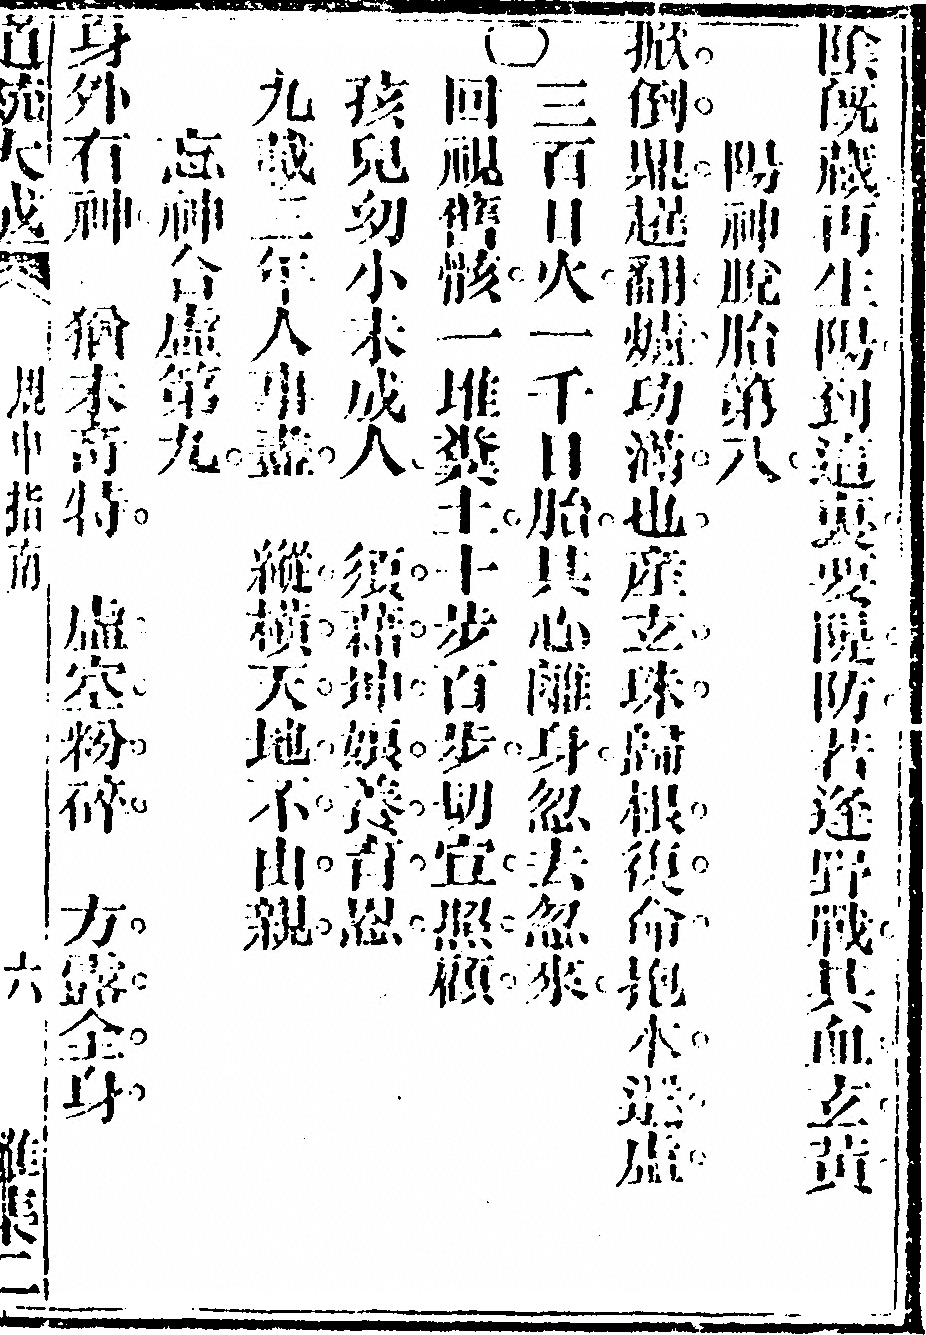 陰旣藏再生陽到這裏要隄防若逢野戰其血玄黃
陽神脫胎第八
掀倒鼎踢翻爐功滿也產玄珠歸根復命抱本還虛
三百日火一千日胎其心離身忽去忽來
回視舊骸一堆糞土十步百步切宜照顧
孩兒幼小未成人 須藉坤娘養育恩
九載三年人事盡 縱橫天地不由親
忘神合虛第九
身外有神 猶未奇特 虛空粉碎 方露全身
道統大成 規中指南 六 雅集二